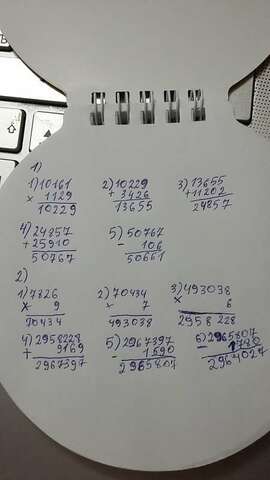 1)
1) 10161
× 1129
10229
2) 10229
+ 3426
13655
3) 13655
+ 11202
24857
4) 24857
+ 25910
50767
5) 50767
- 106
50661
2)
1) 7826
× 9
70434
2) 70434
× 7
493038
3) 493038
× 6
2958 228
4) 2958228
+ 9169
2967397
5) 2967397
- 1590
2965807
6) 2965807
- 1780
2964027